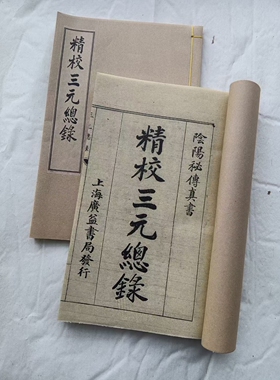 精校三元總錄
陰陽秘傳真書
精校三元總錄
上海廣益書局發行